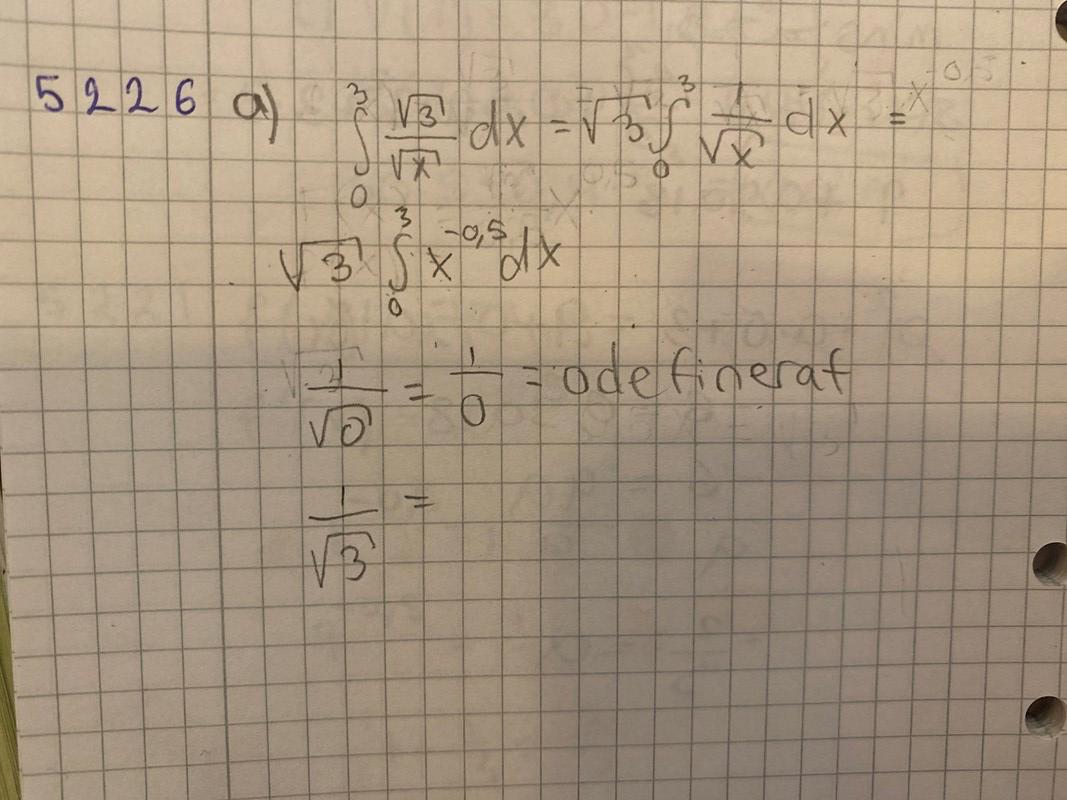 5226 a) ∫₀³ √3/√x dx = √3 ∫₀³ 1/√x dx =
√3 ∫₀³ x^-0,5 dx
1/√0 = 1/0 = odefinerat
1/√3 =